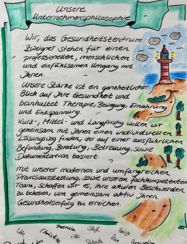 Unsere
Unternehmensphilosophie
Wir, das Gesundheitszentrum
Zweigner stehen für einen
professionellen, menschlichen
und einfühlsamen Umgang mit
Ihnen.
Unsere Stärke ist ein ganzheitlicher
Blick auf Ihre Gesundheit und
beinhaltet Therapie, Bewegung, Ernährung
und Entspannung.
Kurz-, Mittel- und Langfristig wollen wir
gemeinsam mit Ihnen einen individuellen
Lösungsweg finden, der auf einer ausführlichen
Befundung, Beratung, Betreuung, sowie
Dokumentation basiert.
Mit unserer modernen und umfangreichen
Praxisausstattung, sowie unserem fachkompetenten
Team, schaffen wir es, Ihre akuten Beschwerden
zu lindern, um gemeinsam aktiv Ihren
Gesundheitserfolg zu erreichen.